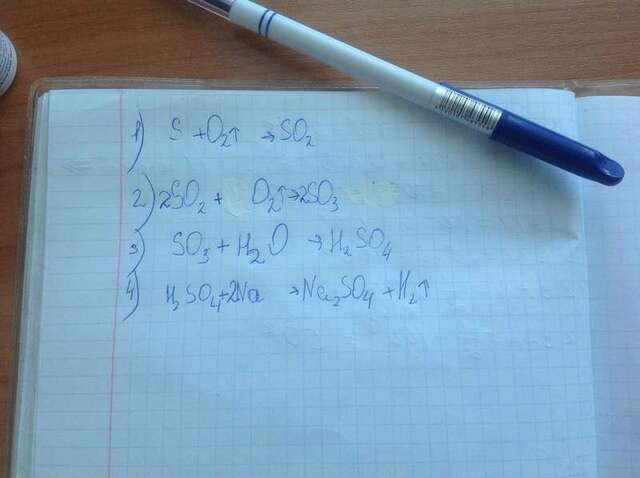 1) S + O₂↑ → SO₂
2) 2SO₂ + O₂↑ → 2SO₃
3) SO₃ + H₂O → H₂SO₄
4) H₂SO₄ + 2Na → Na₂SO₄ + H₂↑